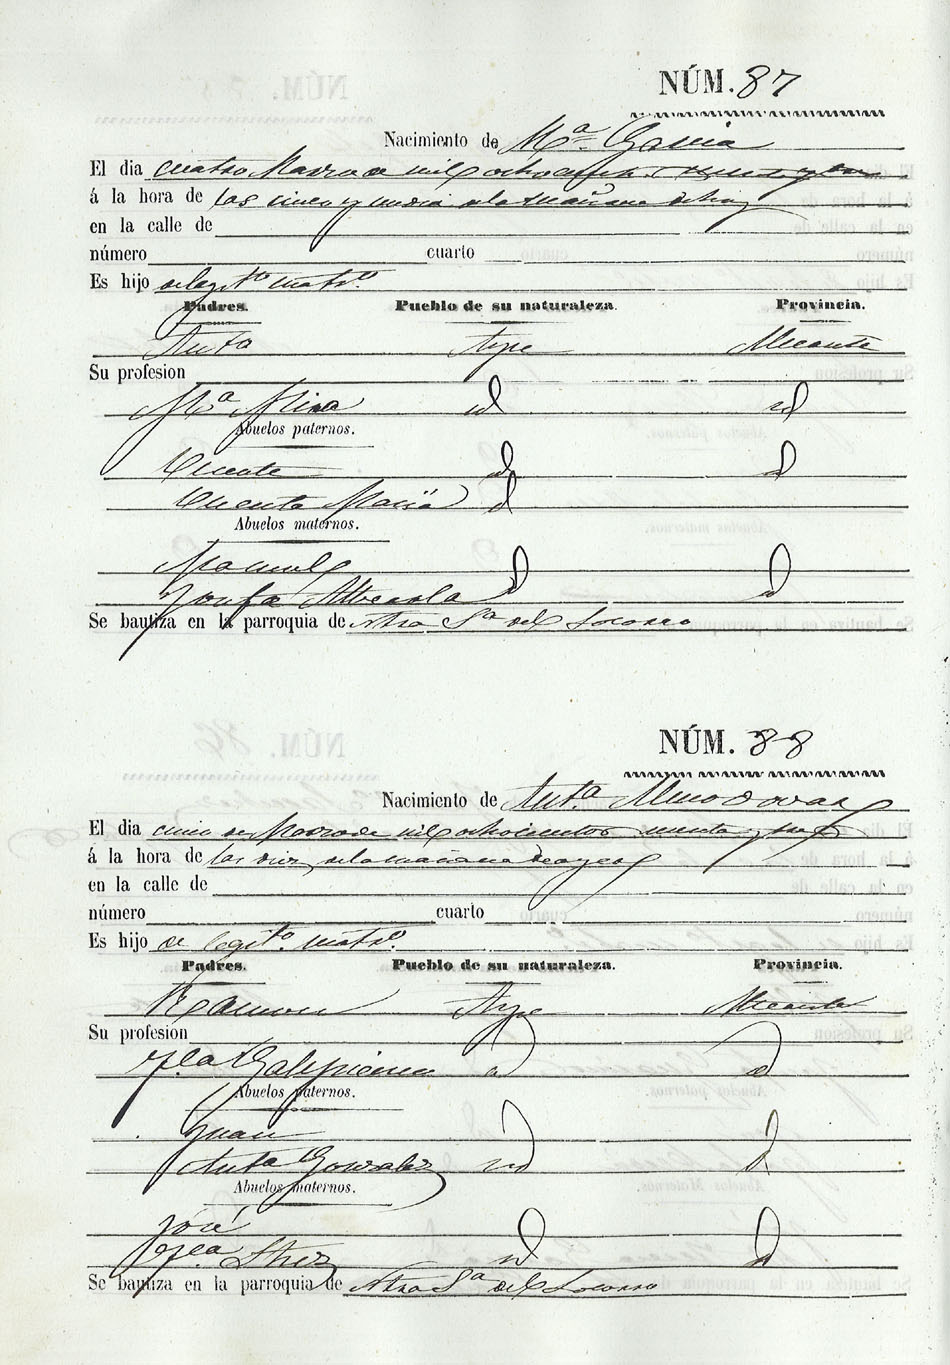 NÚM. 87
Nacimiento de Mª Garcia
El dia cuatro Marzo de mil ochocientos
á la hora de las cinco y media de la mañana de hoy
en la calle de
número cuarto
Es hijo de legitº matrº
Padres. Pueblo de su naturaleza. Provincia.
Antº Aspe Alicante
Su profesion
Mª Mira id id
Abuelos paternos.
Vicente id id
Vicenta id
Abuelos maternos.
Manuel
Josefa id id
Se bautiza en la parroquia de Ntra Sª del Socorro
NÚM. 88
Nacimiento de Antª Almodovar
El dia cinco de Marzo de mil ochocientos
á la hora de las diez de la mañana de ayer
en la calle de
número cuarto
Es hijo de legitº matrº
Padres. Pueblo de su naturaleza. Provincia.
Ramon Aspe Alicante
Su profesión
Galipienso id id
Abuelos paternos.
Juan
Antª Gonzalez id id
Abuelos maternos.
José
id id
Se bautiza en la parroquia de Ntra Sª del Socorro